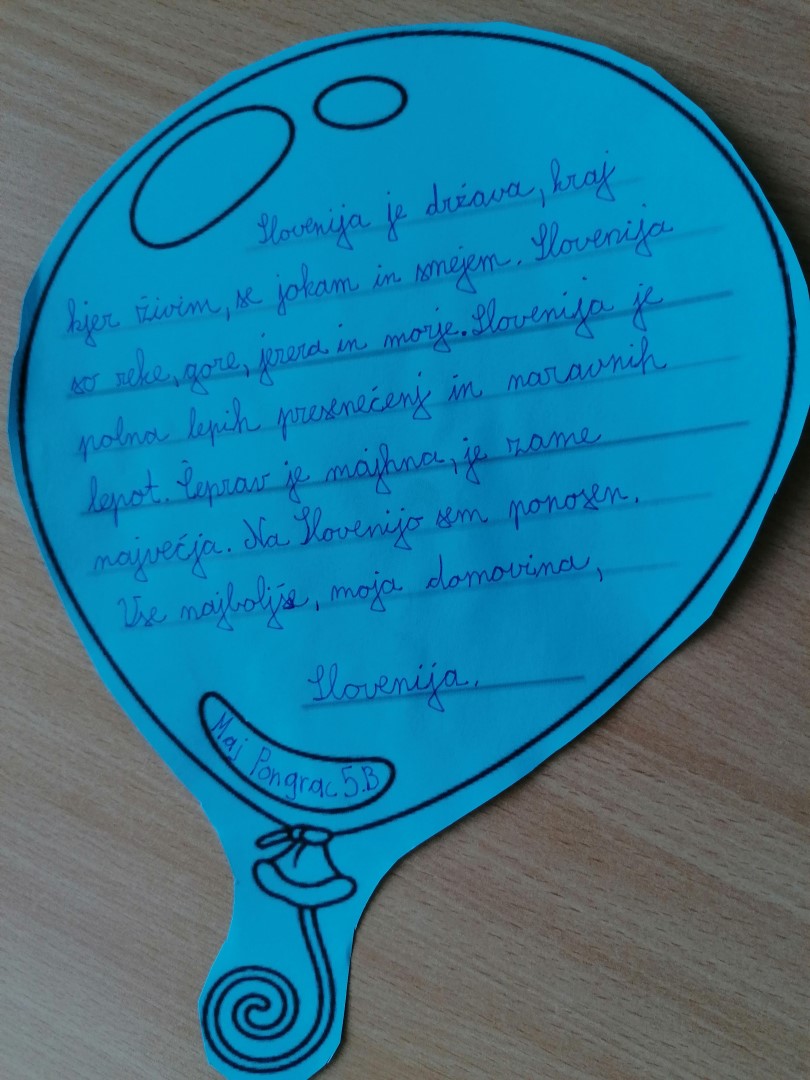 Slovenija je država, kraj
kjer živim, se jokam in smejem. Slovenija
so reke, gore, jezera in morje. Slovenija je
polna lepih presenečenj in naravnih
lepot. Čeprav je majhna, je zame
največja. Na Slovenijo sem ponosen.
Vse najboljše, moja domovina,
Slovenija.
Maj Pongrac 5.B